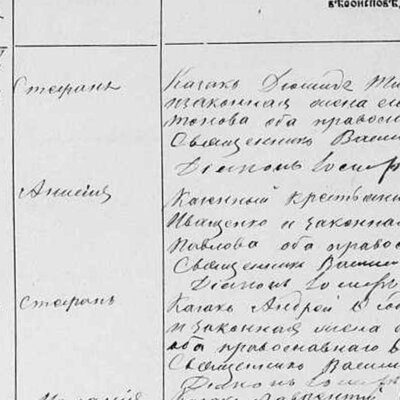 вѣроисповѣд
Стефанъ
Казакъ Діомидъ
и законная жена е
това оба правос
Священникъ Васил
Діаконъ Іосифъ
Анисія
Казенный крестьянин
Иващенко и законна
Павлова оба правос
Священникъ Васил
Діаконъ Іосифъ
Стефанъ
Казакъ Андрей
и законная жена
оба православнаго в
Священникъ Васил
Діаконъ Іосифъ
Казакъ